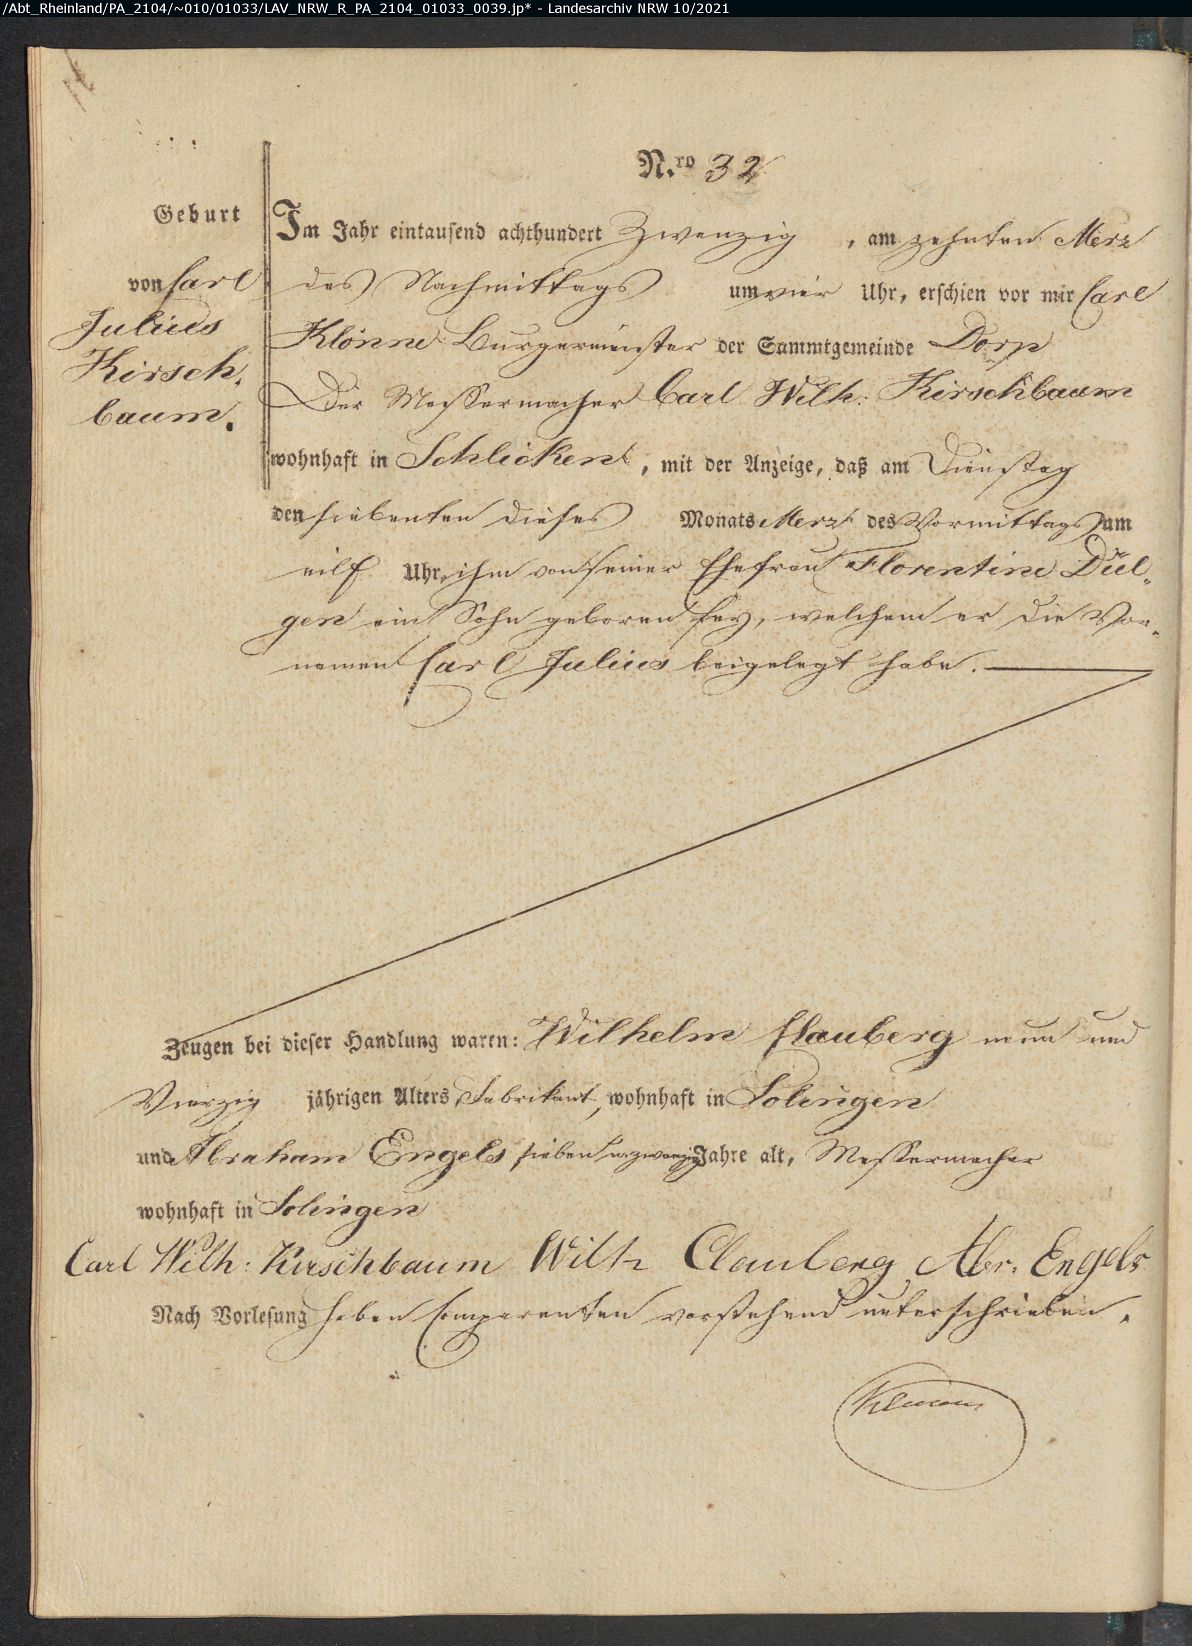 /Abt_Rheinland/PA_2104/~010/01033/LAV_NRW_R_PA_2104_01033_0039.jp* - Landesarchiv NRW 10/2021
N.ro 32
Geburt
von Carl
Julius
Kirsch,
baum.
Im Jahr eintausend achthundert Zwanzig, am zehnten Merz
des Nachmittags um vier Uhr, erschien vor mir Carl
Klönne Burgermeister der Sammtgemeinde Dorp
Der Messermacher Carl Wilh: Kirschbaum
wohnhaft in Schlicken, mit der Anzeige, daß am Dienstag
den siebenten dieses Monats Merz des Vormittags um
eilf Uhr, ihm von seiner Ehefrau Florentine Dül-
gen ein Sohn geboren sey, welchem er die Vor-
namen Carl Julius beigelegt habe.
Zeugen bei dieser Handlung waren: Wilhelm Clauberg neun und
Vierzig jährigen Alters Fabrikant, wohnhaft in Solingen
und Abraham Engels sieben u. zwanzig Jahre alt, Messermacher
wohnhaft in Solingen
Carl Wilh: Kirschbaum Wilh Clauberg Abr. Engels
Nach Vorlesung haben Comparenten vorstehend unterschrieben.